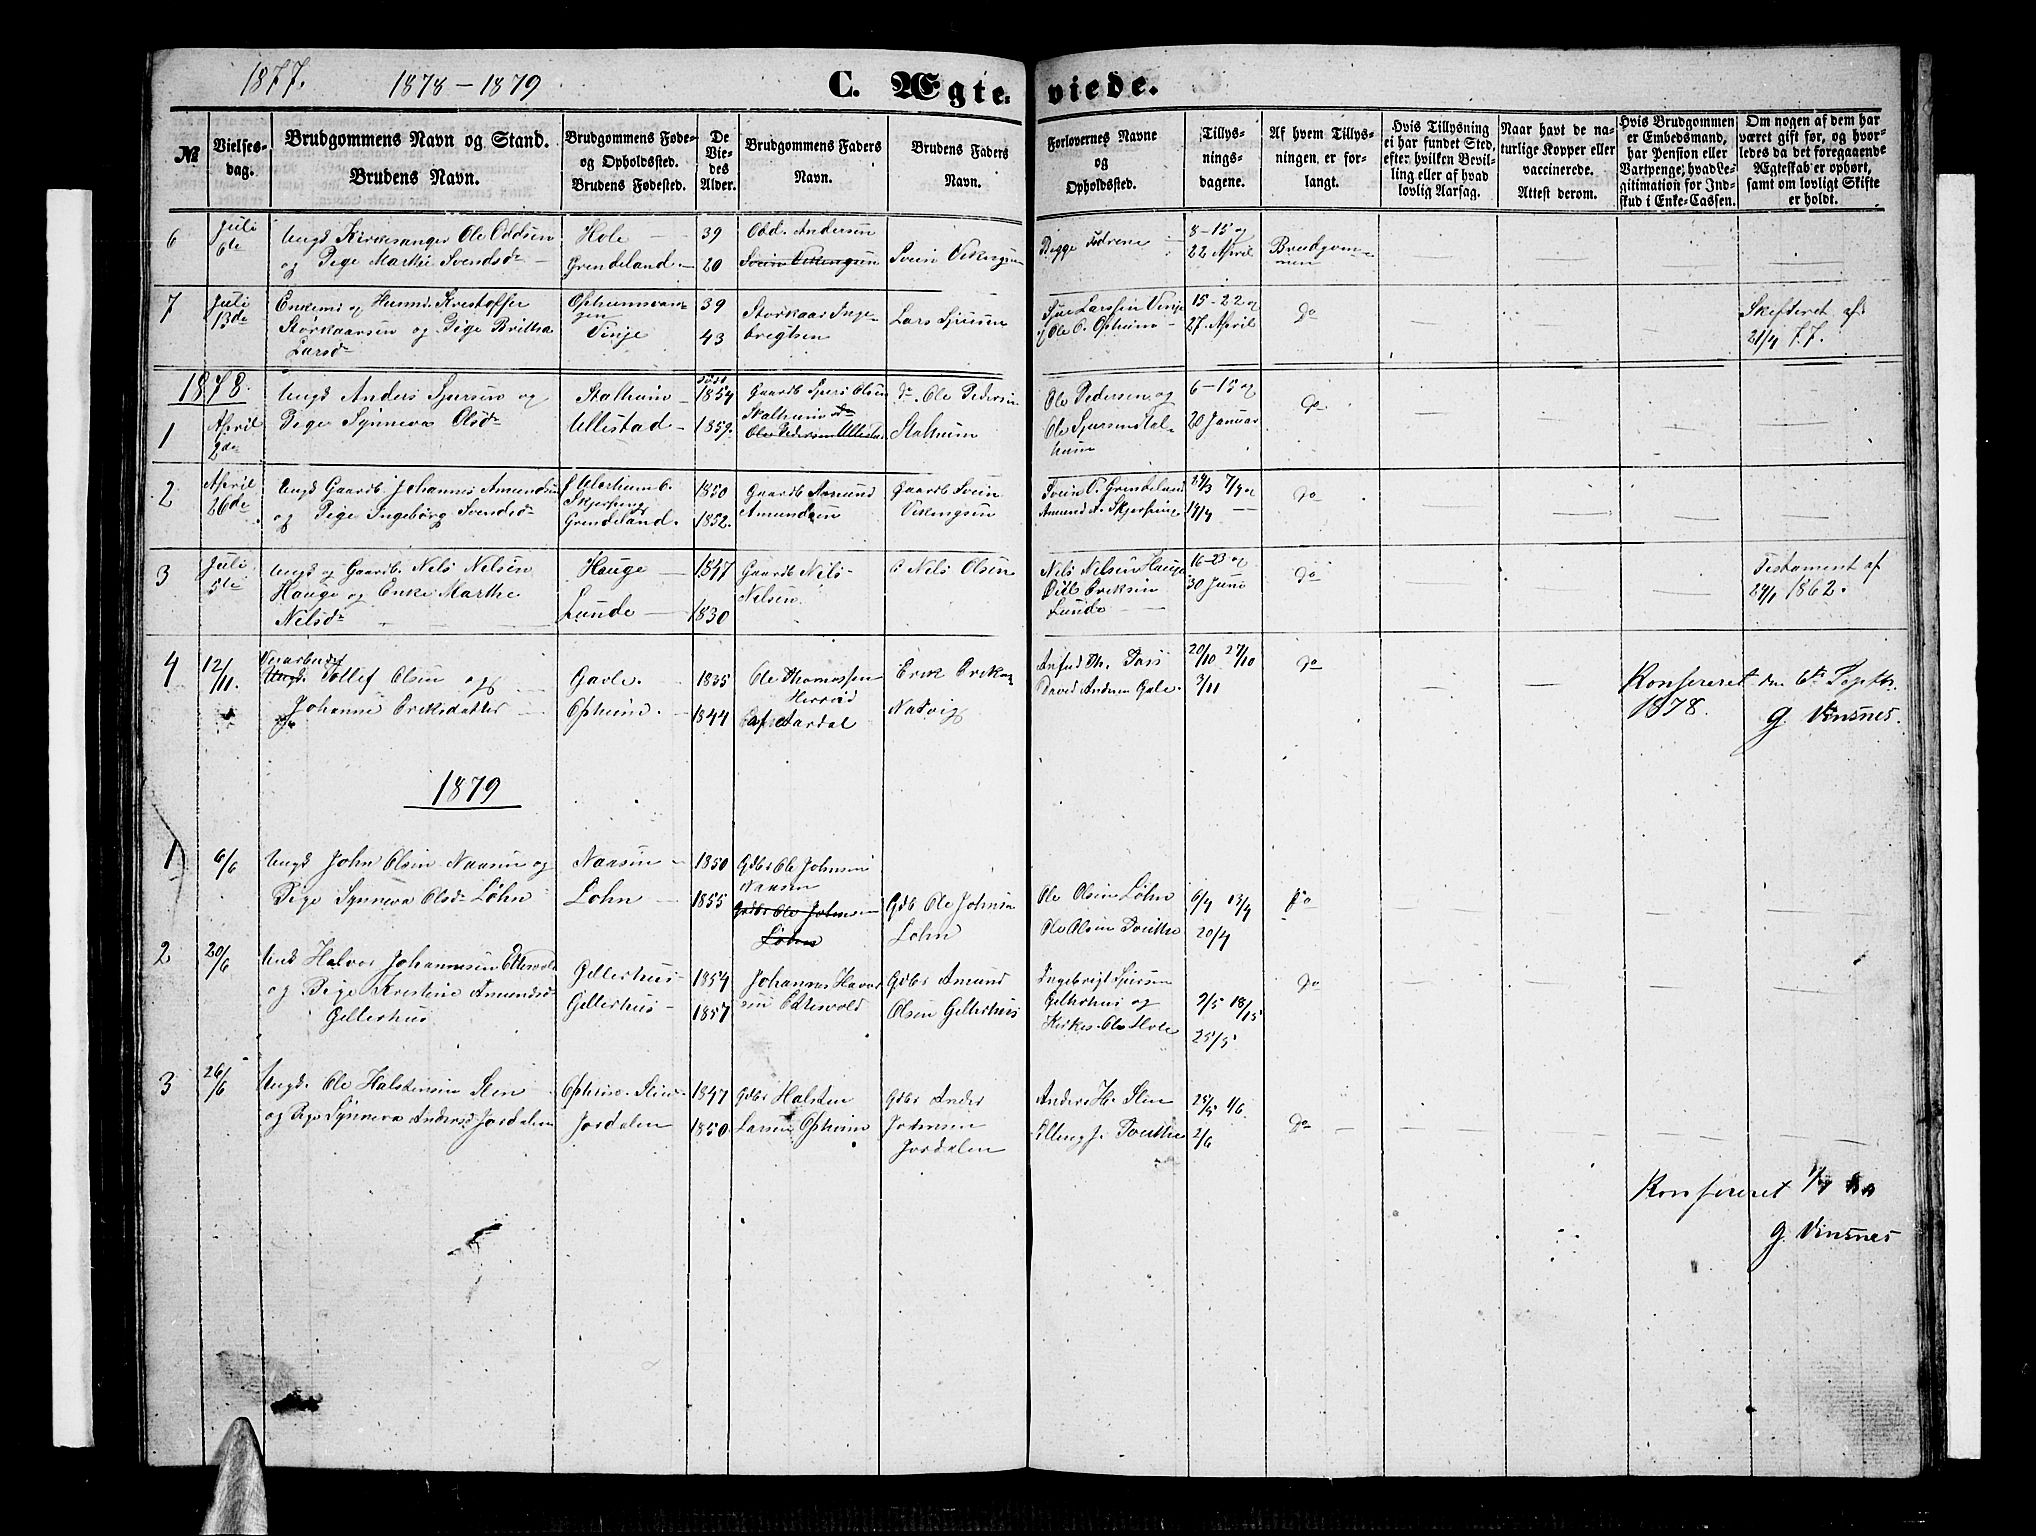 1877. 1878–1879 C. Ægteviede.
№
Vielsesdag.
Brudgommens Navn og Stand.
Brudens Navn.
Brudgommens Føde- og Opholdssted.
Brudens Fødested.
De Viedes Alder.
Brudgommens Faders Navn.
Brudens Faders Navn.
Forlovernes Navne og Opholdssted.
Tillysningsdagene.
Af hvem Tillysningen er forlangt.
Hvis Tillysning ei har fundet Sted, efter hvilken Bevilling eller af hvad lovlig Aarsag.
Naar havt de naturlige Kopper eller vaccinerede. Attest derom.
Hvis Brudgommen er Embedsmand, har Pension eller Vartpenge, hvad Legitimation for Indskud i Enke-Cassen.
Om nogen af dem har været gift før, og hvorledes da det foregaaende Ægteskab er ophørt, samt om lovligt Skifte er holdt.
6 Juli 6te Ungk Kirkesanger Ole Oddsen Hole 39 Odd Andersen Begge Fædrene 8–15 og Brudgommen
og Pige Marthe Svendsd. Grendeland 20 Svein Vikingsen Svein Vikingsen 22 April
7 Juli 13de Enkemd og Huusmd. Kristoffer 39 Storkaar Inge- Sjur Larssen Vinje 15–22 og do Skifteret af
Storkaarsen og Pige Brittha Vinje 43 bregtsen Lars Sjursen og Ole O. Opheim 27 April 21/4 77.
Larsd.
1878
1 April 2den Ungk Anders Sjursen og Stalheim 1854 Gaardb Sjur Olsen do. Ole Pedersen Ole Pedersen og 6–15 og do
Pige Synneva Olsd. Ullestad 1859. Stalheim Stalheim Ole Sjursen Stal- 20 Januar
Ole Pedersen Ullestad heim
2 April 26de Ungk Gaardb Johannes Amundsen Skjerping 1850 Gaardb Amund Gaardb Svein Svein O. Grendeland 24/3 7/4 og do
og Pige Ingebørg Svendsd. Grendeland. 1852. Amundsen Vikingsen Amund A. Skjerping 14/4
3 Juli 5te Ungk og Gaardb. Nels Nelsen Hauge 1847 Gaardb Nels Nels Olsen Nels Nelsen Hauge 16–23 og do Testament af
Hauge og Enke Marthe Lunde 1830 Nelsen Eriksen 30 Juni 1862.
Nelsd. Lunde
4 12/11. Tollef Olsen og Gavle 1835 Ole Thomassen Erik Eriksen Th. 20/10 27/10 do Konfereret den 6te Septbr.
Johanne Eriksdatter Opheim. 1844 Aardal Nadvig David Andersen Gale. 3/11 1878. G. Vinsnes.
1879
1 6/6 Ungk John Olsen Naasen og Naasen 1850 Gdbr Ole Johnsen
Naasen
Pige Synneva Olsd. Løhn Løhn 1855 Gdbr Ole Johnsen Gdb Ole Johnsen Ole Olsen Løhn 6/4 13/4 do
Løhn Løhn Ole Olsen Tvinthe 20/4
2 20/6 Halvor Johannesen Ettesvold Gellerhus 1854 Johannes Gdbr Amund Ingebrigt Sjursen do
og Pige Kristine Amundsd. Gellerhus 1857 Ettesvold Olsen Gellerhus Gellerhus og 2/5 18/5
Gellerhus Kirkes. Ole Hole 25/5
3 26/6 Ungk. Ole Halstensen Slen Opheim Slen 1847 Gdbr Halsten Gdbr Anders Anders H. Slen 25/5 1/6
og Pige Synneva Andersd Jordalen Jordalen 1850. Larsen Opheim Johnsen Elling J. Tvinthe 2/6 do
Jordalen
Konfereret
G. Vinsnes